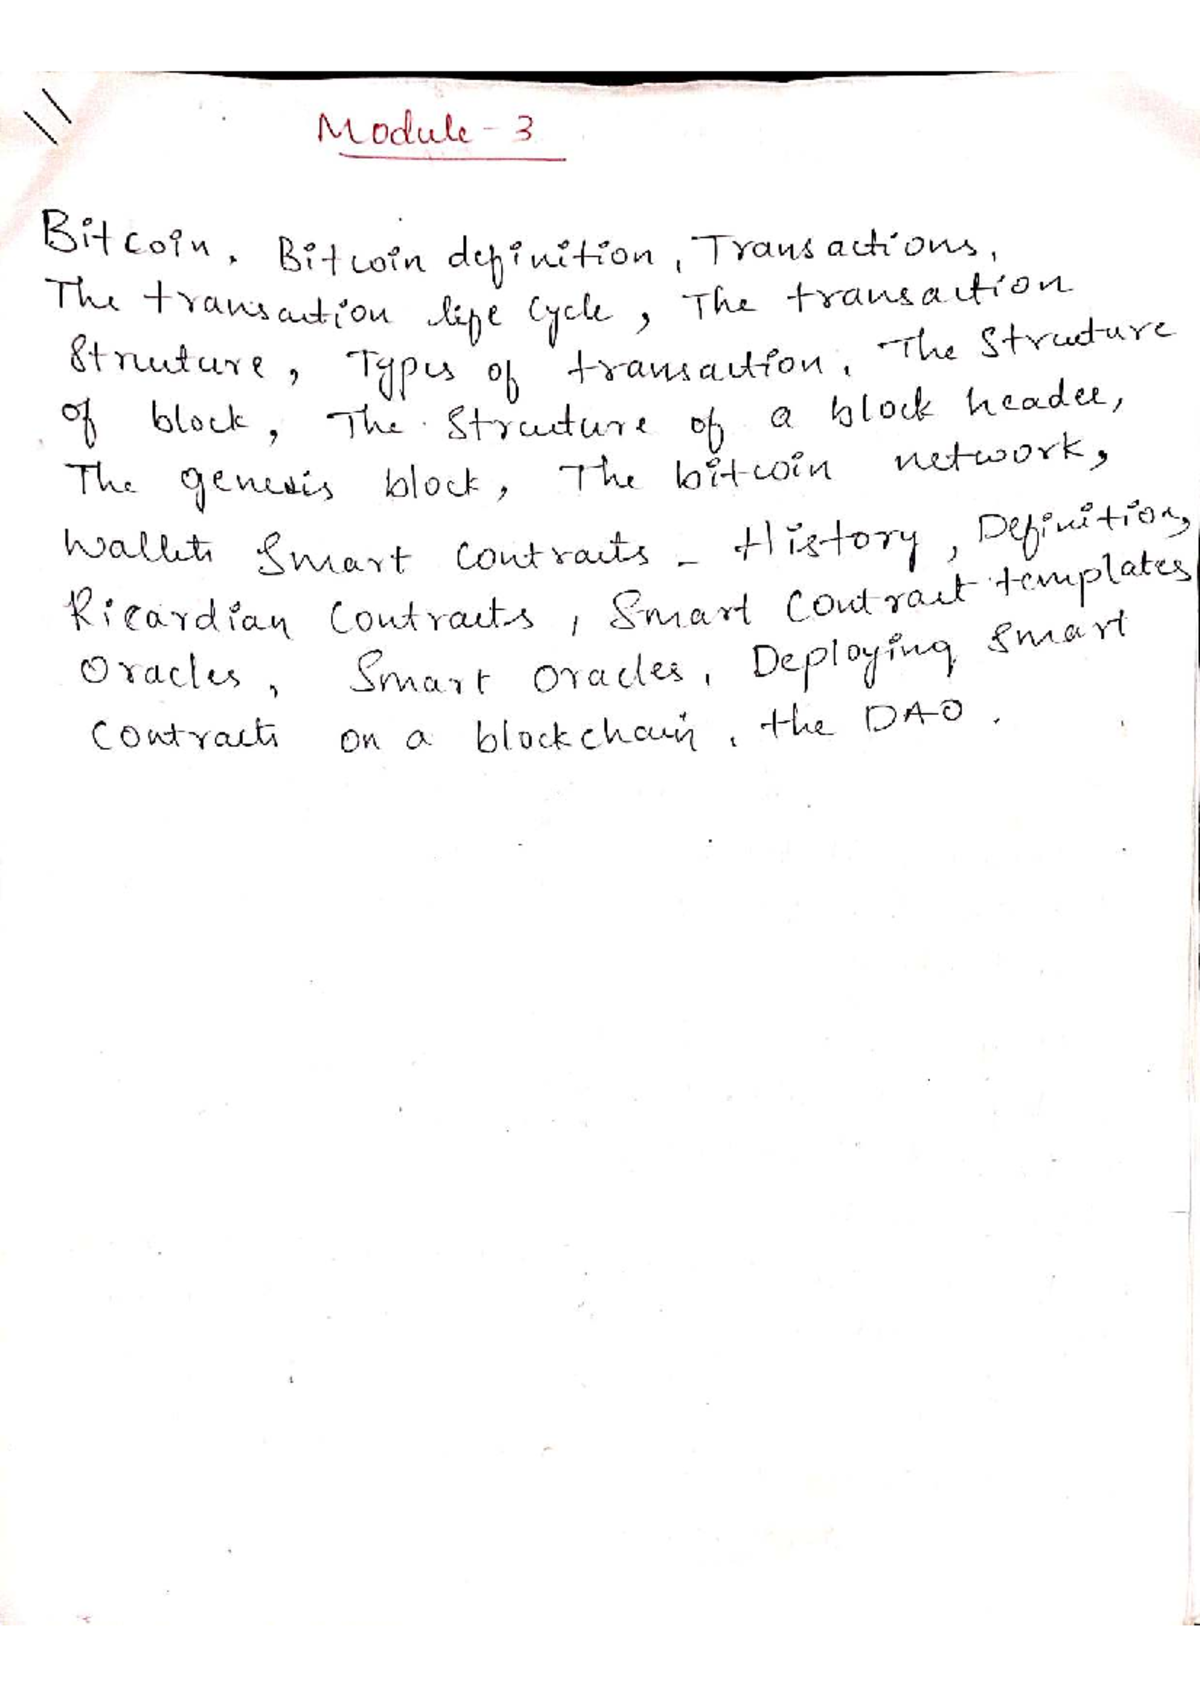 Module - 3
Bitcoin, Bitcoin definition, Transactions,
The transaction life cycle, The transaction
Structure, Types of transaction, The Structure
of block, The Structure of a block header,
The genesis block, The bitcoin network,
Wallets Smart Contracts - History, Definition,
Ricardian Contracts, Smart Contract templates
Oracles, Smart Oracles, Deploying Smart
Contracts on a blockchain, the DAO.